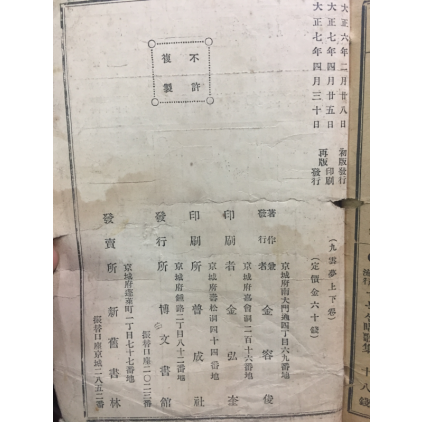 大正六年二月廿八日 初版發行
大正七年四月廿五日 再版印刷
大正七年四月三十日 再版發行
不許
複製
（九雲夢上下卷）
（定價金六十錢）
京城府南大門通四丁目六九番地
著作兼發行者 金容俊
京城府嘉會洞二百十六番地
印刷者 金弘奎
京城府壽松洞四十四番地
印刷所 普成社
京城府鍾路二丁目八十二番地
發行所 博文書館
振替口座二〇二三番
京城府蓬萊町一丁目七十七番地
發賣所 新舊書林
振替口座京城二八五二番